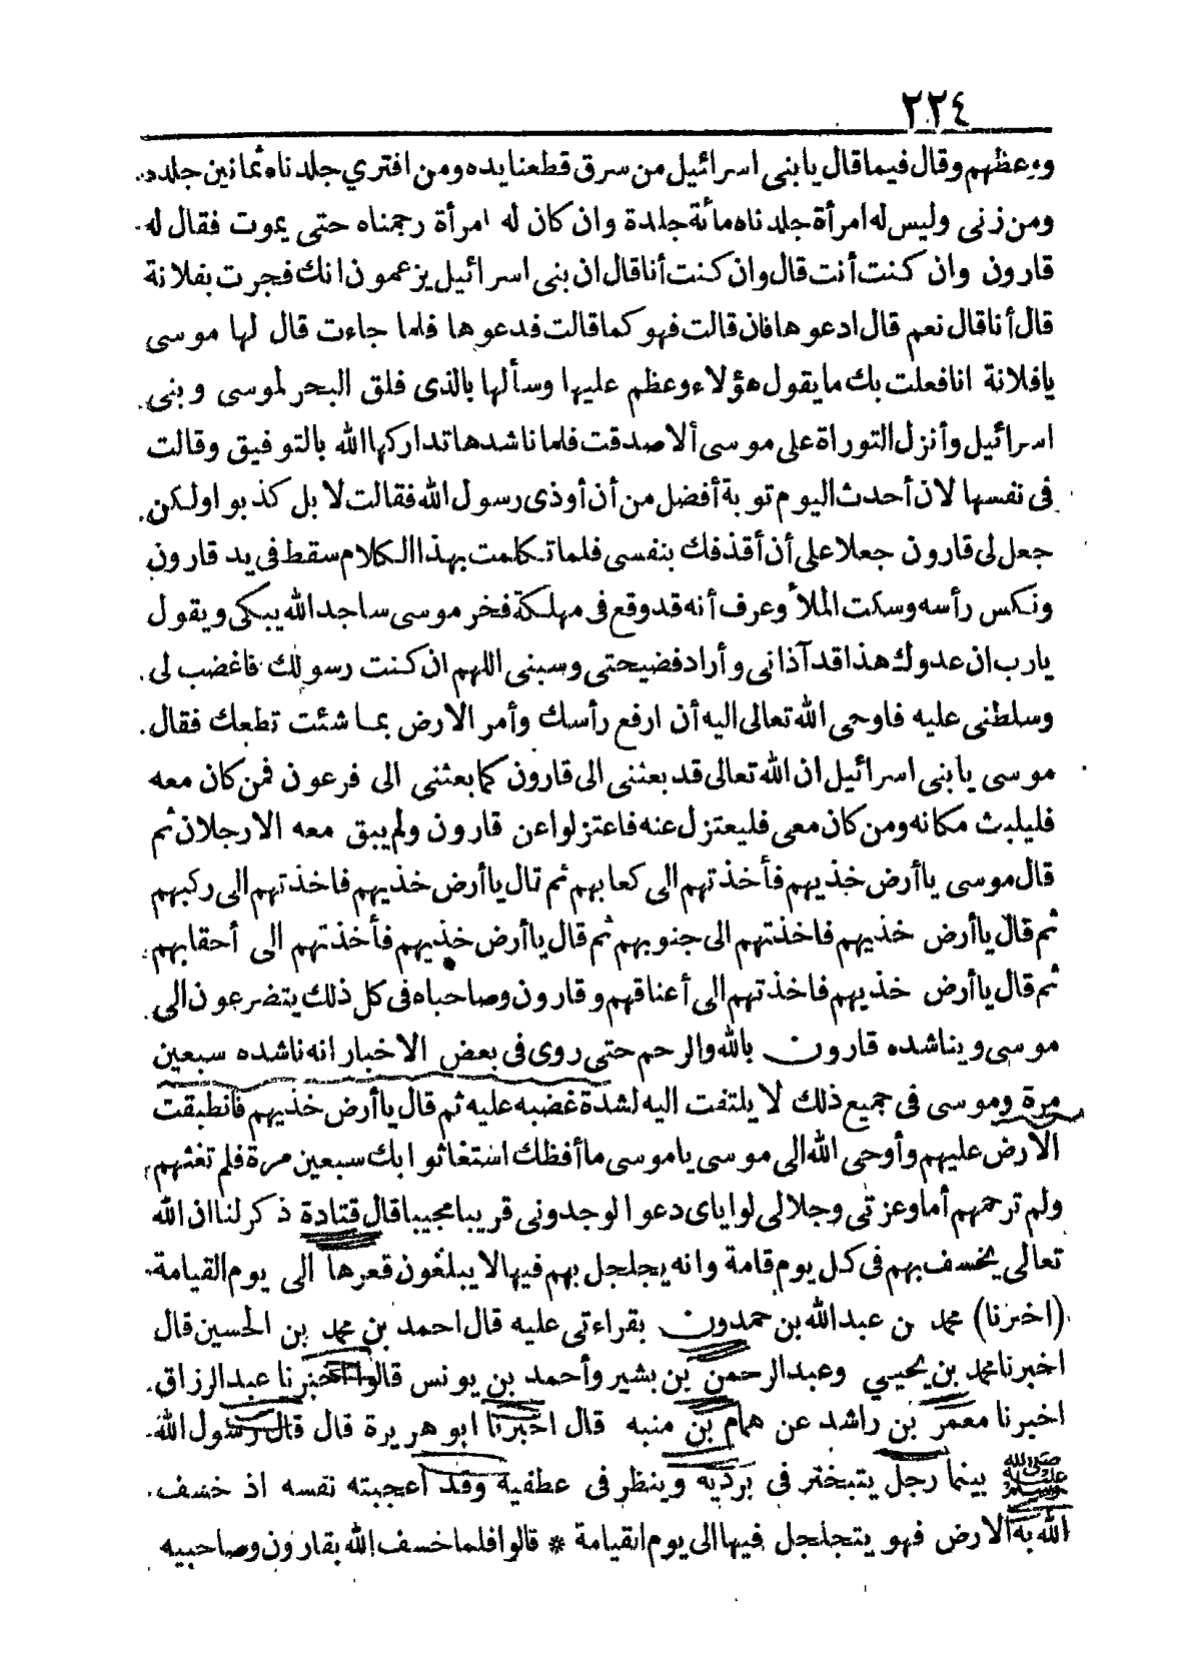 ٢٢٤
ووعظهم وقال فيما قال يا بنى اسرائيل من سرق قطعنا يده ومن افتري جلدناه ثمانين جلده
ومن زنى وليس له امرأة جلدناه مائة جلدة وان كان له امرأة رجمناه حتى يموت فقال له
قارون وان كنت أنت قال وان كنت أنا قال ان بنى اسرائيل يزعمون انك فجرت بفلانة
قال أنا قال نعم قال ادعوها فان قالت فهو كما قالت فدعوها فلما جاءت قال لها موسى
يافلانة انا فعلت بك ما يقول هؤلاء وعظم عليها وسألها بالذى فلق البحر لموسى وبنى
اسرائيل وأنزل التوراة على موسى ألا صدقت فلما ناشدها تداركها الله بالتوفيق وقالت
فى نفسها لان أحدث اليوم توبة أفضل من أن أوذى رسول الله فقالت لا بل كذبوا ولكن
جعل لى قارون جعلا على أن أقذفك بنفسى فلما تكلمت بهذا الكلام سقط فى يد قارون
ونكس رأسه وسكت الملأ وعرف أنه قد وقع فى مهلكة فخر موسى ساجد الله يبكى ويقول
يارب ان عدوك هذا قد آذانى وأراد فضيحتى وسبنى اللهم ان كنت رسولك فاغضب لى
وسلطنى عليه فاوحى الله تعالى اليه أن ارفع رأسك وأمر الارض بما شئت تطعك فقال
موسى يا بنى اسرائيل ان الله تعالى قد بعثنى الى قارون كما بعثنى الى فرعون فمن كان معه
فليلبث مكانه ومن كان معى فليعتزل عنه فاعتزلوا عن قارون ولم يبق معه الارجلان ثم
قال موسى ياأرض خذيهم فأخذتهم الى كعابهم ثم قال ياأرض خذيهم فاخذتهم الى ركبهم
ثم قال ياأرض خذيهم فاخذتهم الى جنوبهم ثم قال ياأرض خذيهم فأخذتهم الى أحقابهم
ثم قال ياأرض خذيهم فاخذتهم الى أعناقهم وقارون وصاحباه فى كل ذلك يتضرعون الى
موسى ويناشده قارون بالله والرحم حتى روى فى بعض الاخبار انه ناشده سبعين
مرة وموسى فى جميع ذلك لا يلتفت اليه لشدة غضبه عليه ثم قال ياأرض خذيهم فانطبقت
الارض عليهم وأوحى الله الى موسى ياموسى ما أفظك استغاثوا بك سبعين مرة فلم تغثهم
ولم ترحمهم أما وعزتى وجلالى لو اياى دعوا لوجدونى قريبا مجيبا قال قتادة ذكر لنا ان الله
تعالى يخسف بهم فى كل يوم قامة وانه يجلجل بهم فيها لا يبلغون قعرها الى يوم القيامة
(اخبرنا) محمد بن عبدالله بن حمدون بقراءتى عليه قال احمد بن محمد بن الحسين قال
اخبرنا محمد بن يحيى وعبدالرحمن بن بشير وأحمد بن يونس قالوا اخبرنا عبدالرزاق
اخبرنا معمر بن راشد عن همام بن منبه قال اخبرنا ابو هريرة قال قال رسول الله
صلى الله عليه وسلم بينما رجل يتبختر فى برديه وينظر فى عطفية وقد أعجبته نفسه اذ خسف
الله به الارض فهو يتجلجل فيها الى يوم القيامة * قالوا فلما خسف الله بقارون وصاحبيه